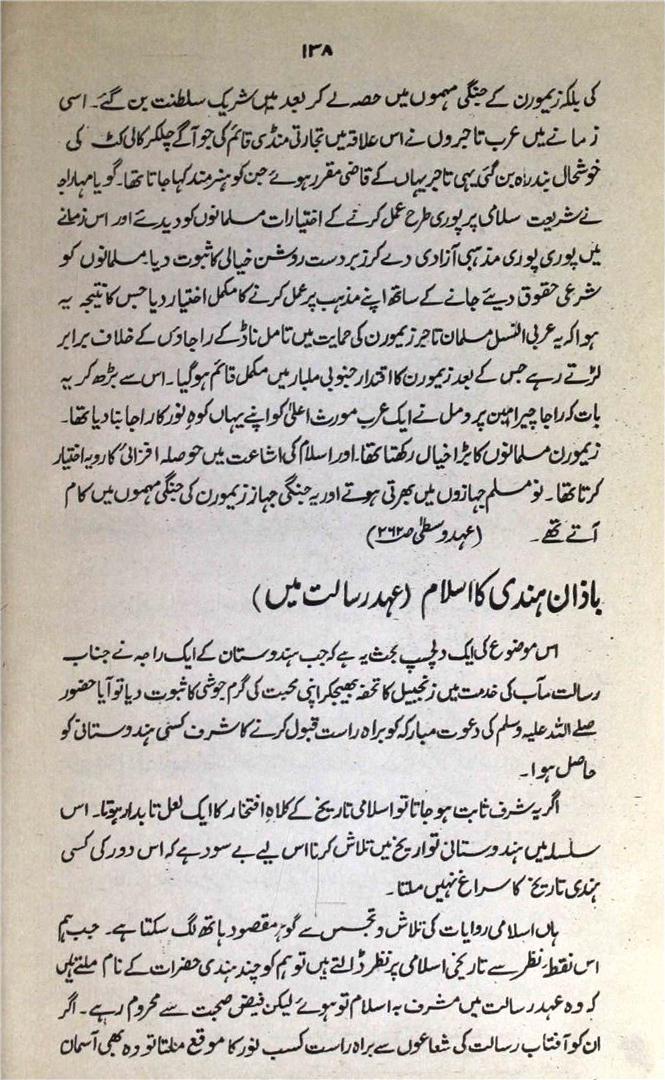 ۱۳۸
کی بلکہ زیمورن کے جنگی مہموں میں حصہ لے کر بعد میں شریک سلطنت بن گئے۔ اسی
زمانے میں عرب تاجروں نے اس علاقہ میں تجارتی منڈی قائم کی جو آگے چلکر کالی کٹ کی
خوشحال بندرگاہ بن گئی یہی تاجر یہاں کے قاضی مقرر ہوئے جن کو ہنر مند کہا جاتا تھا۔ گویا مہاراجہ
نے شریعت سلامی پر پوری طرح عمل کرنے کے اختیارات مسلمانوں کو دیدئے اور اس زمانے
میں پوری پوری مذہبی آزادی دے کر زبردست روشن خیالی کا ثبوت دیا۔ مسلمانوں کو
شرعی حقوق دیئے جانے کے ساتھ اپنے مذہب پر عمل کرنے کا مکمل اختیار دیا جس کا نتیجہ یہ
ہوا کہ یہ عربی النسل مسلمان تاجر زیمورن کی حمایت میں تامل ناڈ کے راجاؤں کے خلاف برابر
لڑتے رہے جس کے بعد زیمورن کا اقتدار جنوبی ملبار میں مکمل قائم ہو گیا۔ اس سے بڑھ کر یہ
بات کہ راجا چیرامین پرومل نے ایک عرب مورث اعلیٰ کو اپنے یہاں کوہِ نور کا راجا بنا دیا تھا۔
زیمورن مسلمانوں کا بڑا خیال رکھتا تھا۔ اور اسلام کی اشاعت میں حوصلہ افزائی کا رویہ اختیار
کرتا تھا۔ نو مسلم جہازوں میں بھرتی ہوتے اور یہ جنگی جہاز زیمورن کی جنگی مہموں میں کام
آتے تھے۔ (عہد وسطیٰ ص۲۶۲)
باذان ہندی کا اسلام (عہد رسالت میں)
اس موضوع کی ایک دلچسپ بحث یہ ہے کہ جب ہندوستان کے ایک راجہ نے جناب
رسالت مآب کی خدمت میں زنجبیل کا تحفہ بھیجکر اپنی محبت کی گرم جوشی کا ثبوت دیا تو آیا حضور
صلے اللہ علیہ وسلم کی دعوت مبارکہ کو براہ راست قبول کرنے کا شرف کسی ہندوستانی کو
حاصل ہوا۔
اگر یہ شرف ثابت ہو جاتا تو اسلامی تاریخ کے کلاہِ افتخار کا ایک لعل تابدار ہوتا۔ اس
سلسلہ میں ہندوستانی تواریخ میں تلاش کرنا اس لیے بے سود ہے کہ اس دور کی کسی
ہندی تاریخ کا سراغ نہیں ملتا۔
ہاں اسلامی روایات کی تلاش و تجسس سے گوہر مقصود ہاتھ لگ سکتا ہے۔ جب ہم
اس نقطۂ نظر سے تاریخ اسلامی پر نظر ڈالتے ہیں تو ہم کو چند ہندی حضرات کے نام ملتے ہیں
کہ وہ عہد رسالت میں مشرف بہ اسلام تو ہوئے لیکن فیض صحبت سے محروم رہے۔ اگر
ان کو آفتاب رسالت کی شعاعوں سے براہ راست کسب نور کا موقع ملتا تو وہ بھی آسمان